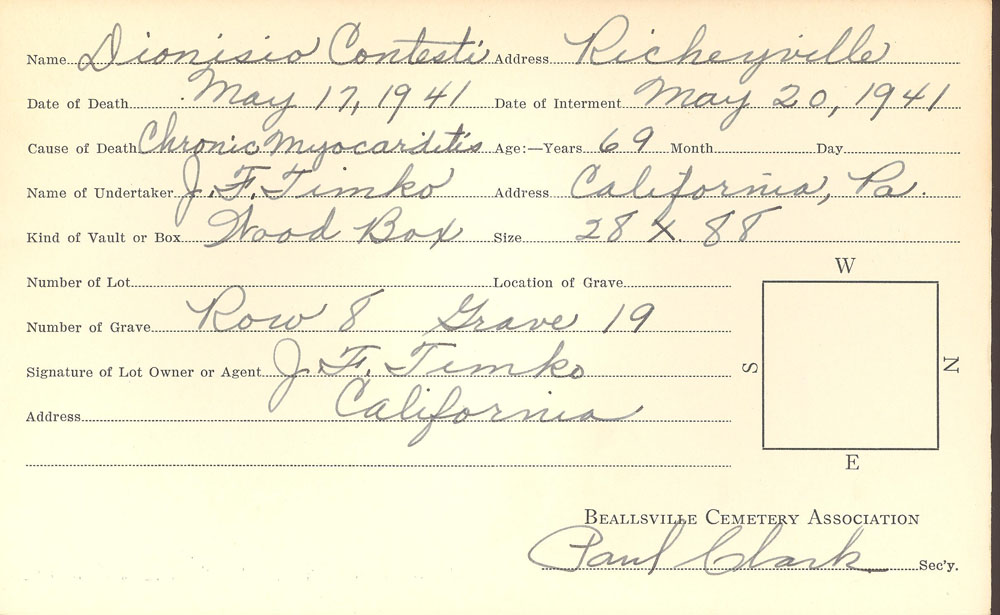 Name Dionisio Contesti Address Richeyville
Date of Death May 17, 1941 Date of Interment May 20, 1941
Cause of Death Chronic Myocarditis Age:—Years 69 Month Day
Name of Undertaker J. F. Timko Address California, Pa.
Kind of Vault or Box Wood Box Size 28 X 88
Number of Lot Location of Grave
Number of Grave Row 8 Grave 19
Signature of Lot Owner or Agent J. F. Timko
Address California
W
S
N
E
BEALLSVILLE CEMETERY ASSOCIATION
Paul Clark Sec'y.